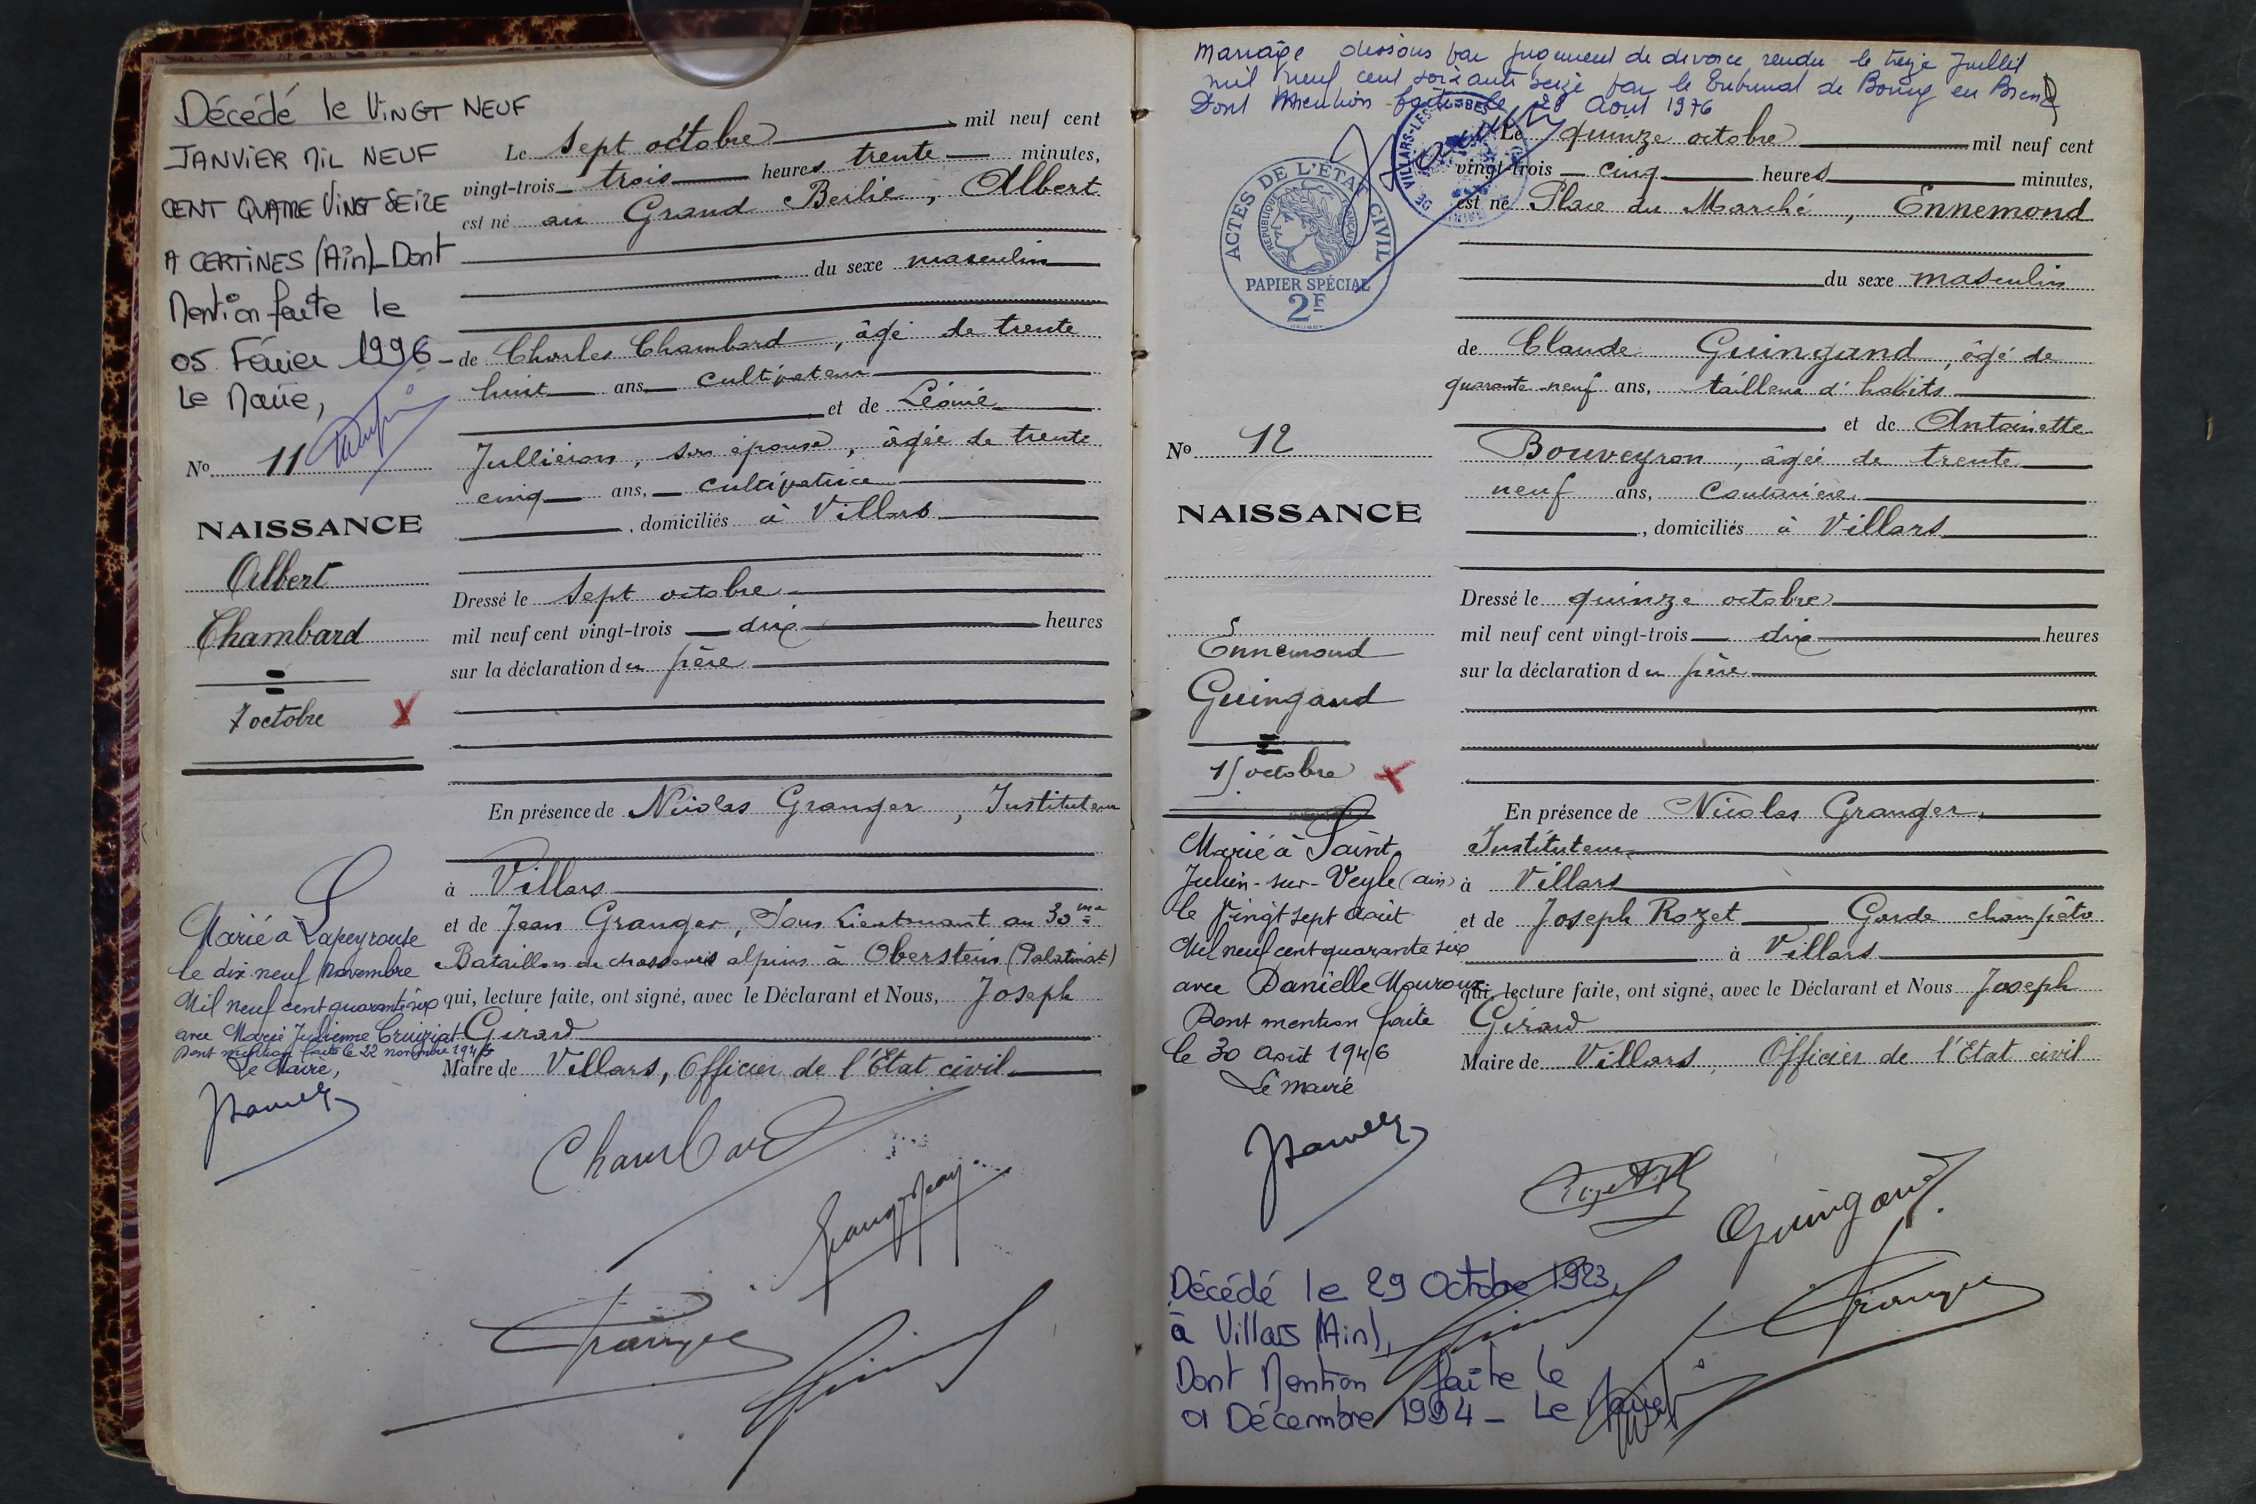 Décédé le VINGT NEUF
JANVIER MIL NEUF
CENT QUATRE VINGT SEIZE
A CERTINES (Ain) - Dont
Mention faite le
05 Février 1996 -
Le Maire,
No 11
NAISSANCE
Albert
Chambard
7 octobre
X
Marié à Lapeyrouse
le dix neuf Novembre
Mil neuf cent quarante six
avec Marie Julienne Cruiziat
Dont mention faite le 22 novembre 1946
Le Maire,
Le sept octobre mil neuf cent
vingt-trois trois heures trente minutes,
est né au Grand Beilie, Albert
du sexe masculin
de Charles Chambard, âgé de trente
huit ans, cultivateur
et de Léonie
Jullieron, son épouse, âgée de trente
cinq ans, cultivatrice
, domiciliés à Villars
Dressé le sept octobre
mil neuf cent vingt-trois dix heures
sur la déclaration du père
En présence de Nicolas Granger, Instituteur
à Villars
et de Jean Granger, Sous Lieutenant au 30me
Bataillon de chasseurs alpins à Oberstein (Palatinat)
qui, lecture faite, ont signé, avec le Déclarant et Nous, Joseph
Girard
Maire de Villars, Officier de l'Etat civil
Chambard
Granger Jean
Granger
Mariage dissous par jugement de divorce rendu le treize Juillet
mil neuf cent soixante seize par le Tribunal de Bourg en Bresse
Dont Mention faite le 20 Août 1976
ACTES DE L'ETAT CIVIL
REPUBLIQUE FRANÇAISE
PAPIER SPÉCIAL
2F
DE VILLARS-LES-DOMBES
No 12
NAISSANCE
Ennemond
Guingand
15 octobre
X
Marié à Saint
Julien-sur-Veyle (Ain)
le Vingt sept Août
Mil neuf cent quarante six
avec Danielle Mouroux
Dont mention faite
le 30 Août 1946
Le maire
Le quinze octobre mil neuf cent
vingt-trois cinq heures minutes,
est né Place du Marché, Ennemond
du sexe masculin
de Claude Guingand, âgé de
quarante-neuf ans, tailleur d'habits
et de Antoinette
Bouveyron, âgée de trente
neuf ans, Couturière
, domiciliés à Villars
Dressé le quinze octobre
mil neuf cent vingt-trois dix heures
sur la déclaration du père
En présence de Nicolas Granger,
Instituteur
à Villars
et de Joseph Rozet Garde champêtre
à Villars
qui, lecture faite, ont signé, avec le Déclarant et Nous Joseph
Girard
Maire de Villars, Officier de l'Etat civil
Guingand
Granger
Décédé le 29 Octobre 1923,
à Villars (Ain),
Dont Mention faite le
01 Décembre 1994 - Le Maire